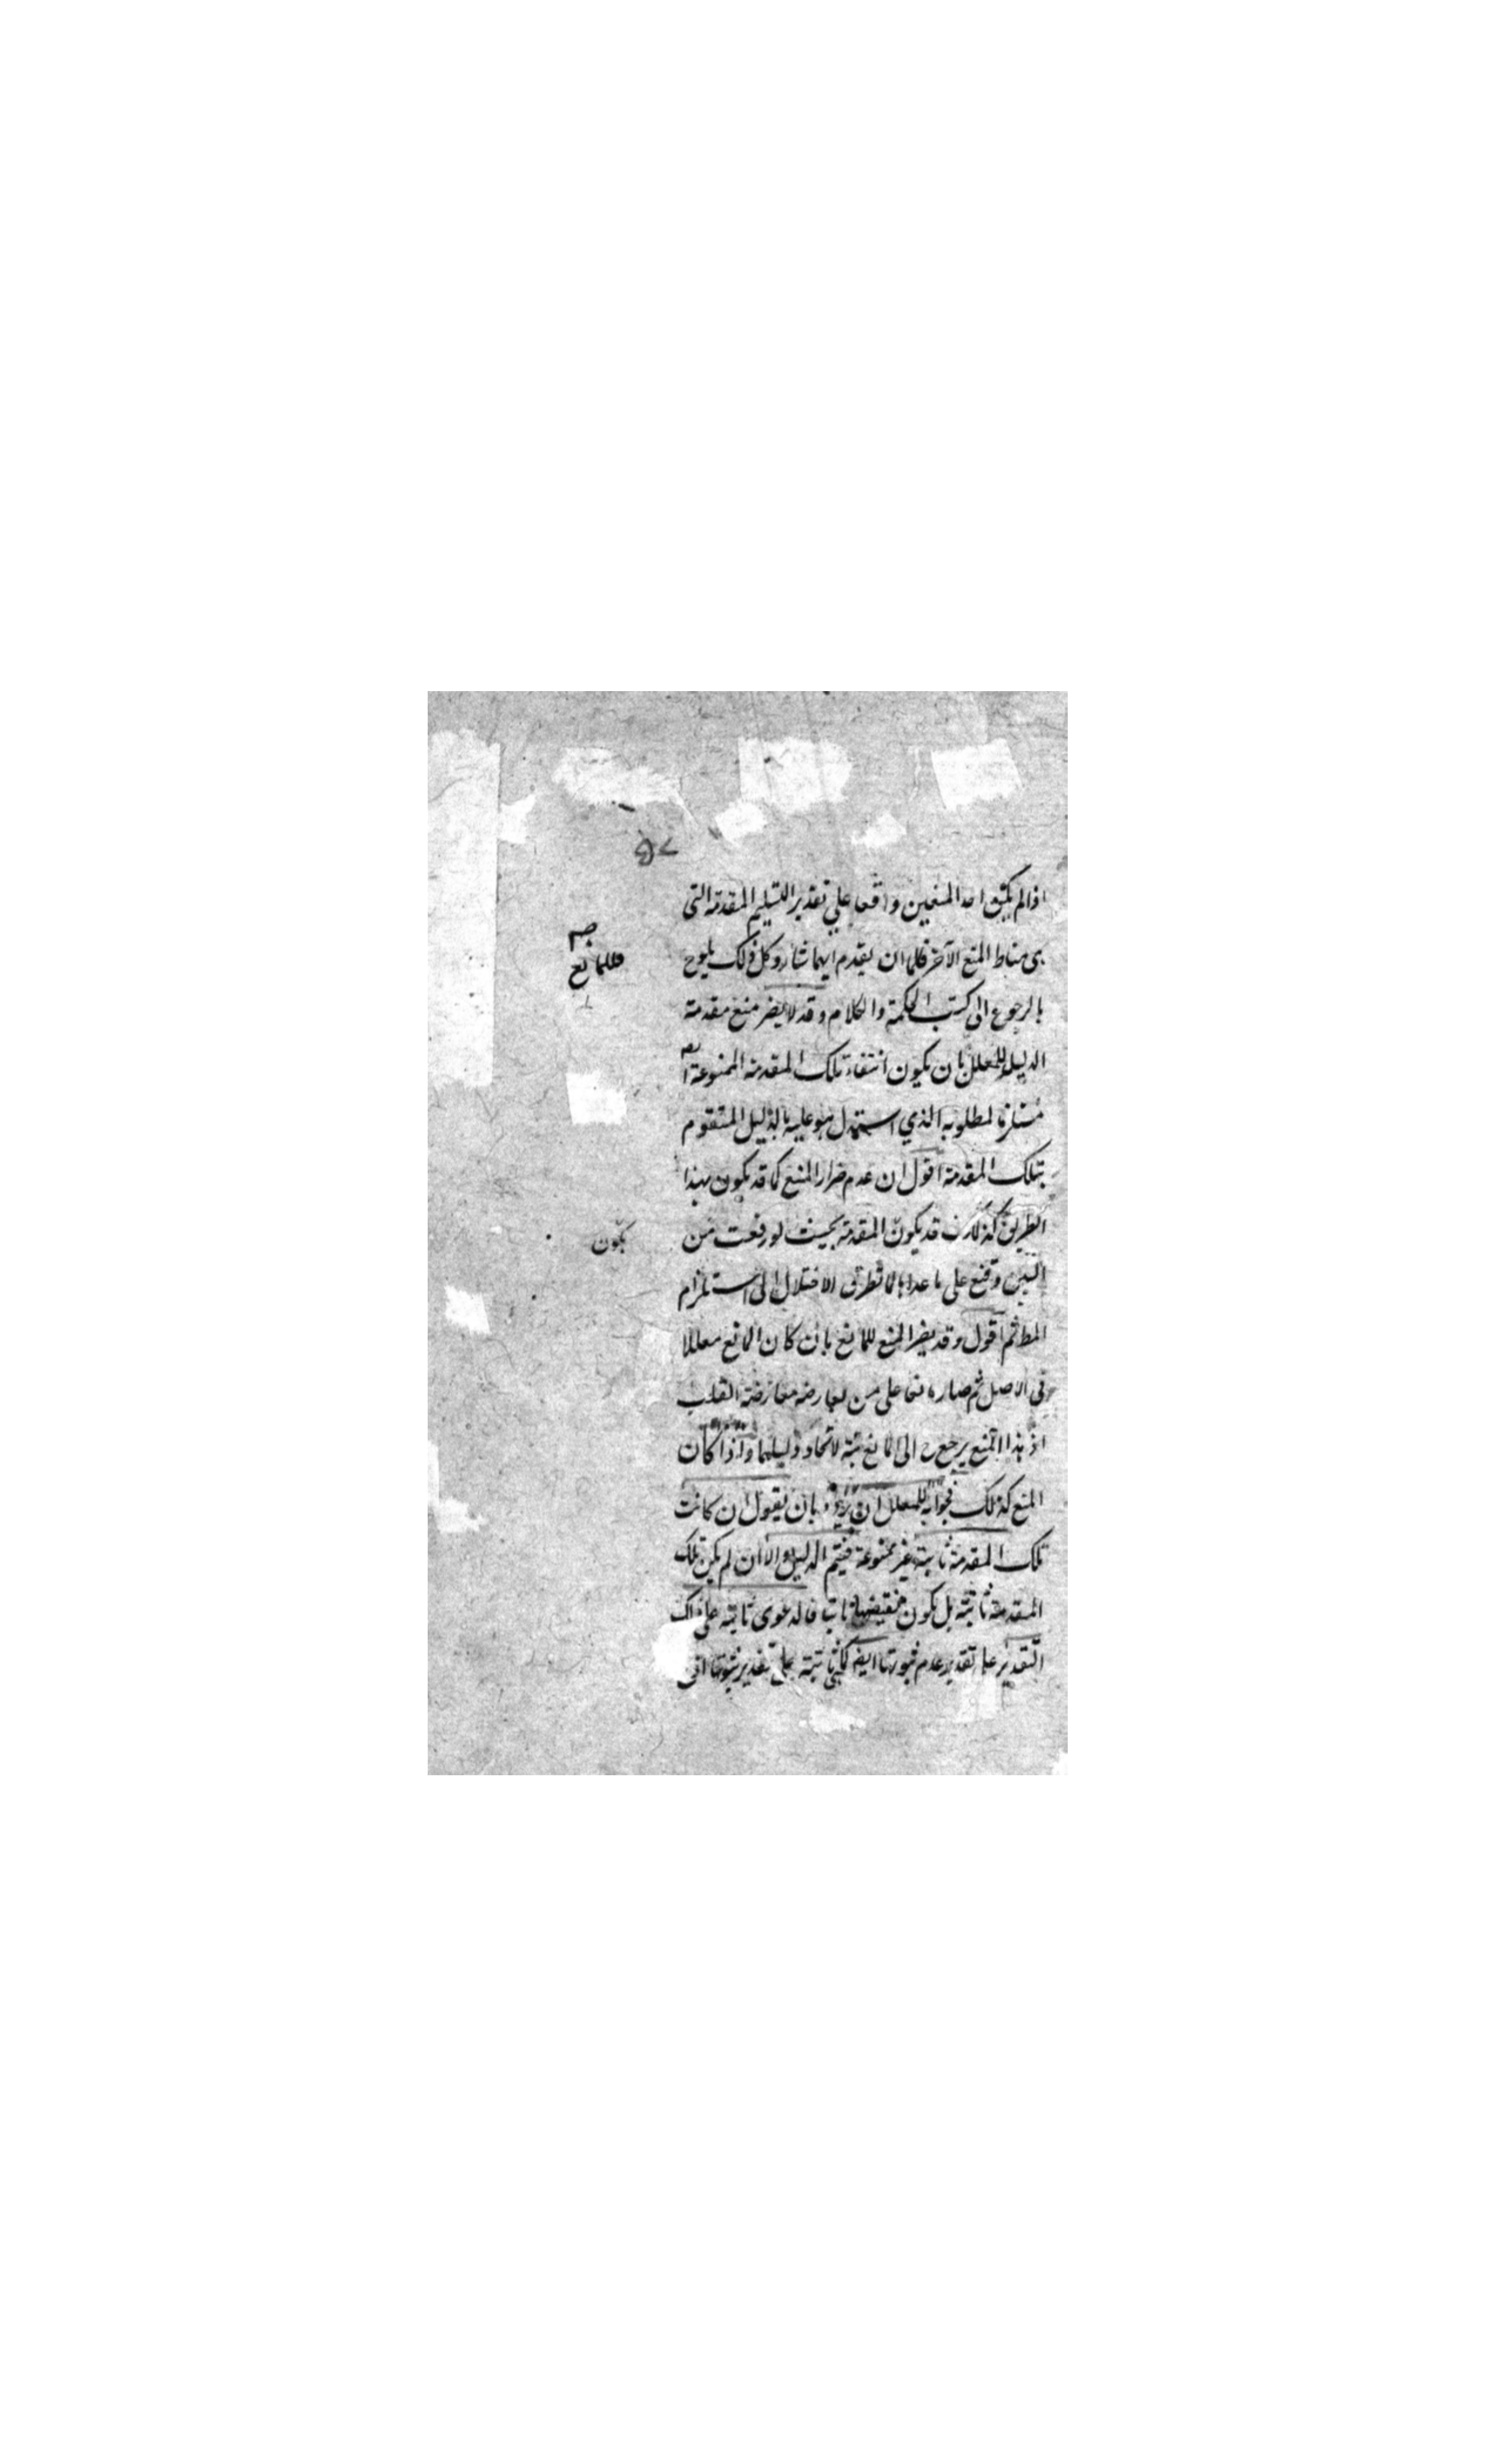 اذا لم يكن احد المنعين واقعا على تقدير التسليم المقدمة التى
هى مناط المنع الآخر فلما ان يقدم ايهما شاء وكل ذلك يلوح
فللمانع
بالرجوع الى كتب الحكمة والكلام وقد لا يضر منع مقدمة
الدليل للمعلل بان يكون انتفاء تلك المقدمة الممنوعة
مستلزما لمطلوبه الذي استدل هو عليه بالدليل المتقوم
بتلك المقدمة اقول ان عدم ضرار المنع كما قد يكون بهذا
الطريق كذلك قد يكون المقدمة بحيث لو رفعت من
يكون
البين وقنع على ما عداها لما تطرق الاختلال الى استلزام
المط ثم اقول وقد يضر المنع للمانع بان كان المانع معللا
فى الاصل ثم صار مانعا على من يعارضه معارضة القلب
اذ هذا المنع يرجع ح الى المانع لاتحاد دليلهما واذا كان
المنع كذلك فجوابه للمعلل ان يردد بان يقول ان كانت
تلك المقدمة ثابتة غير ممنوعة فيتم الدليل والا ان لم يكن تلك
المقدمة ثابتة بل يكون نقيضها ثابتا فالدعوى ثابتة على ذلك
التقدير على تقدير عدم ثبوتها ايض كما هى ثابتة على تقدير ثبوتها